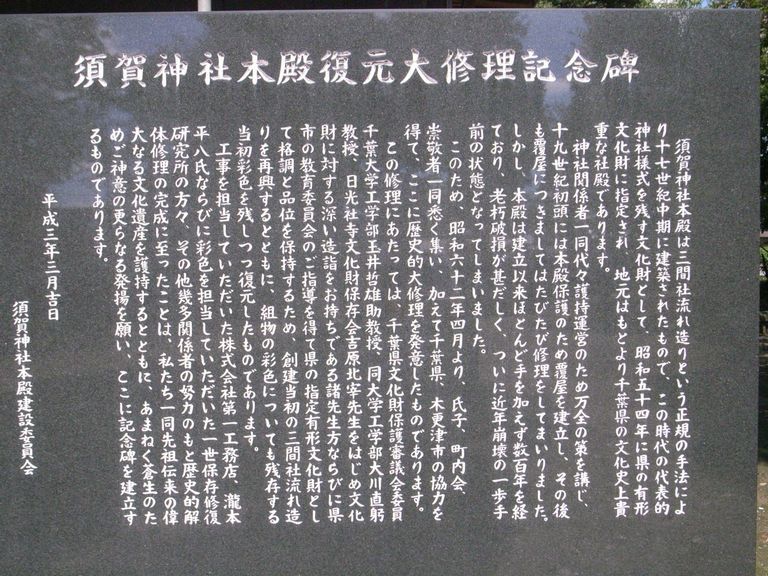 須賀神社本殿復元大修理記念碑
須賀神社本殿は三間社流れ造りという正規の手法によ
り十七世紀中期に建築されたもので、この時代の代表的
神社様式を残す文化財として、昭和五十四年に県の有形
文化財に指定され、地元はもとより千葉県の文化史上貴
重な社殿であります。
神社関係者一同代々護持運営のため万全の策を講じ、
十九世紀初頭には本殿保護のため覆屋を建立し、その後
も覆屋につきましてはたびたび修理をしてまいりました。
しかし、本殿は建立以来ほとんど手を加えず数百年を経
ており、老朽破損が甚だしく、ついに近年崩壊の一歩手
前の状態となってしまいました。
このため、昭和六十二年四月より、氏子、町内会、
崇敬者一同悉く集い、加えて千葉県、木更津市の協力を
得て、ここに歴史的大修理を発意したものであります。
この修理にあたっては、千葉県文化財保護審議会委員
千葉大学工学部玉井哲雄助教授、同大学工学部大川直躬
教授、日光社寺文化財保存会吉原北宰先生をはじめ文化
財に対する深い造詣をお持ちである諸先生方ならびに県
市の教育委員会のご指導を得て県の指定有形文化財とし
て格調と品位を保持するため、創建当初の三間社流れ造
りを再興するとともに、組物の彩色についても残存する
当初彩色を残しつつ復元したものであります。
工事を担当していただいた株式会社第一工務店、瀧本
平八氏ならびに彩色を担当していただいた一世保存修復
研究所の方々、その他幾多関係者の努力のもと歴史的解
体修理の完成に至ったことは、私たち一同先祖伝来の偉
大なる文化遺産を護持するとともに、あまねく蒼生のた
めご神意の更らなる発揚を願い、ここに記念碑を建立す
るものであります。
平成三年三月吉日
須賀神社本殿建設委員会